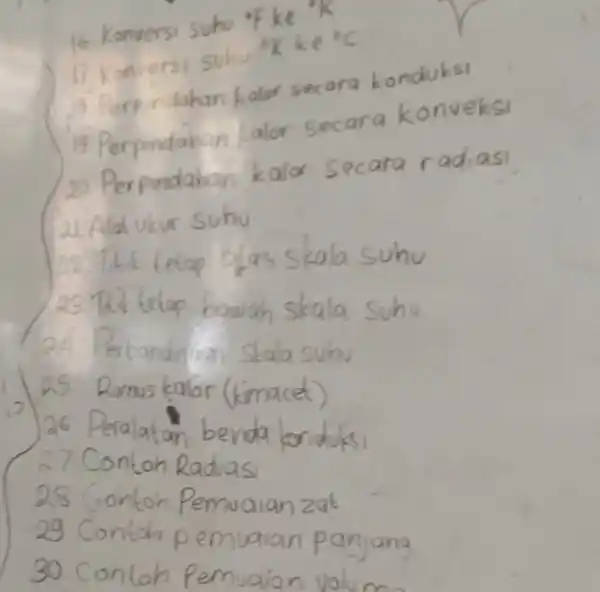 16 Konversi suhu °F ke °K
17 Konversi suhu °K ke °C
18 Perpindahan kalor secara konduksi
19 Perpindahan kalor secara konveksi
20 Perpindahan kalor secara radiasi
21 Alat ukur suhu
22 Titik tetap atas skala suhu
23 Titik tetap bawah skala suhu
24 Perbandingan skala suhu
25 Rumus kalor (kimacet)
26 Peralatan benda konduksi
27 Contoh Radiasi
28 Contoh Pemuaian zat
29 Contoh pemuaian panjang
30 Contoh Pemuaian volume